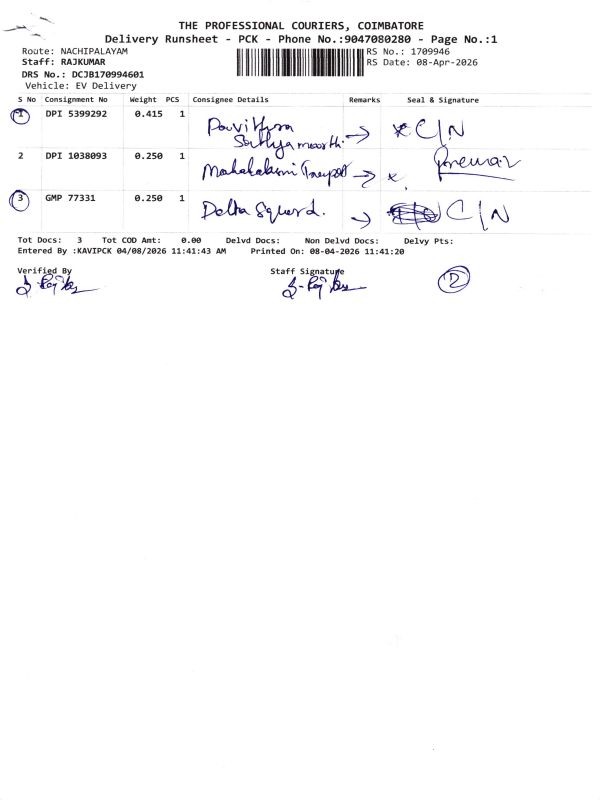 THE PROFESSIONAL COURIERS, COIMBATORE
Delivery Runsheet - PCK - Phone No.:9047080280 - Page No.:1
Route: NACHIPALAYAM RS No.: 1709946
Staff: RAJKUMAR RS Date: 08-Apr-2026
DRS No.: DCJB170994601
Vehicle: EV Delivery
S No Consignment No Weight PCS Consignee Details Remarks Seal & Signature
1 DPI 5399292 0.415 1 Pavithra → x C/N
Sathyamoorthi
2 DPI 1038093 0.250 1 Mahalakshmi → x
3 GMP 77331 0.250 1 Delta Squard. → C/N
Tot Docs: 3 Tot COD Amt: 0.00 Delvd Docs: Non Delvd Docs: Delvy Pts:
Entered By :KAVIPCK 04/08/2026 11:41:43 AM Printed On: 08-04-2026 11:41:20
Verified By Staff Signature
2